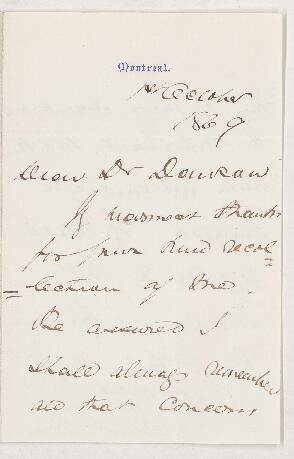 Montreal.
1st October
1869
Dear Dr Dawson
My warmest thanks
for your kind recol=
=lection of me.
Be assured I
shall always remember
all that concerns